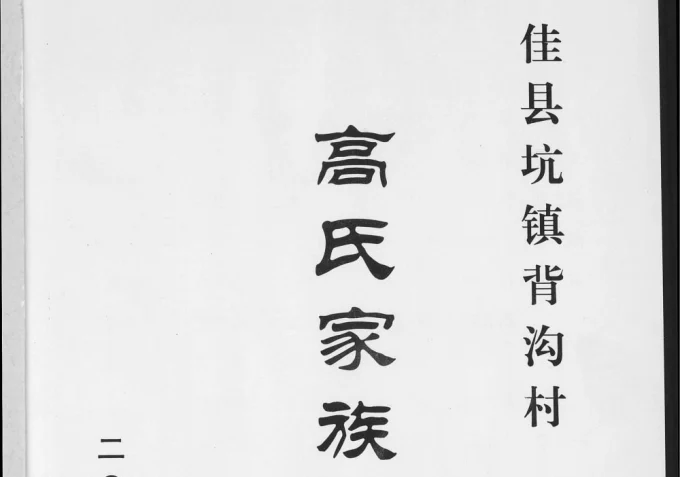 佳县坑镇背沟村
高氏家族
二